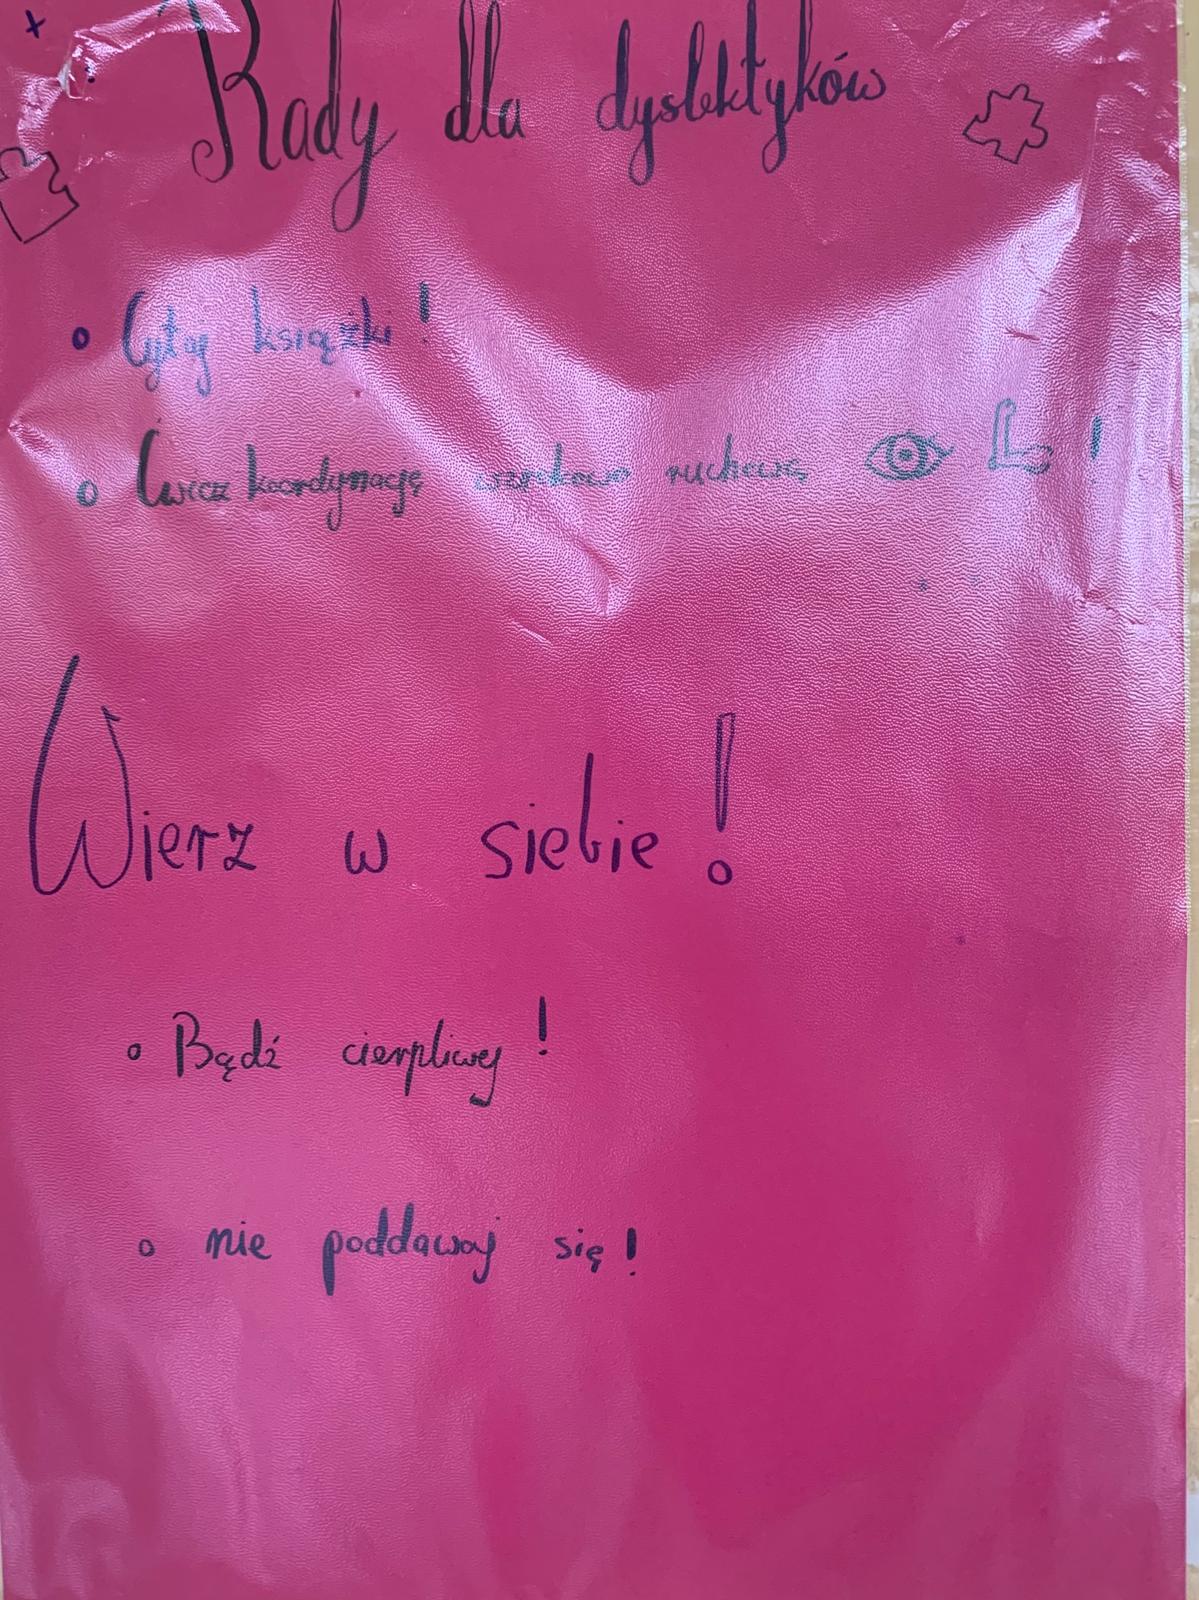 Rady dla dyslektyków
Czytaj książki!
Ćwicz koordynację wzrokowo ruchową !
Wierz w siebie!
Bądź cierpliwy!
nie poddawaj się!